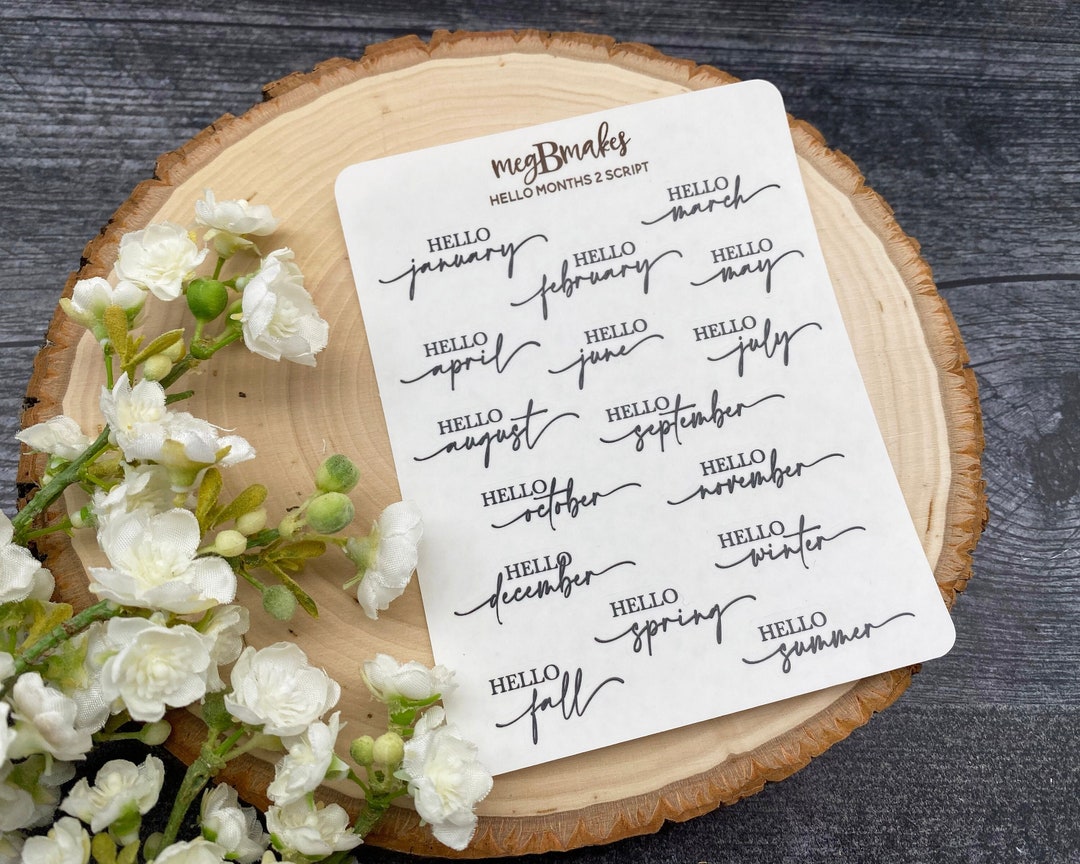 megBmakes
HELLO MONTHS 2 SCRIPT
HELLO
march
HELLO
january
HELLO
february
HELLO
may
HELLO
april
HELLO
june
HELLO
july
HELLO
august
HELLO
september
HELLO
october
HELLO
november
HELLO
december
HELLO
winter
HELLO
spring
HELLO
summer
HELLO
fall